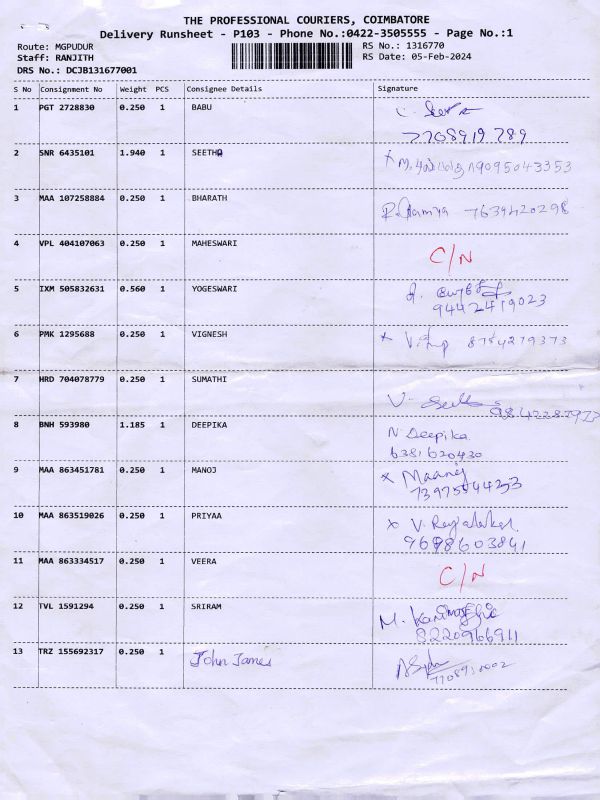 THE PROFESSIONAL COURIERS, COIMBATORE
Delivery Runsheet - P103 - Phone No.:0422-3505555 - Page No.:1
Route: MGPUDUR
RS No.: 1316770
Staff: RANJITH
RS Date: 05-Feb-2024
DRS No.: DCJB131677001
S No Consignment No Weight PCS Consignee Details Signature
1 PGT 2728830 0.250 1 BABU
7708919789
2 SNR 6435101 1.940 1 SEETHA 9095043353
3 MAA 107258884 0.250 1 BHARATH 7639420298
4 VPL 404107063 0.250 1 MAHESWARI C/N
5 IXM 505832631 0.560 1 YOGESWARI
9442419023
6 PMK 1295688 0.250 1 VIGNESH 8754279373
7 HRD 704078779 0.250 1 SUMATHI
8 BNH 593980 1.185 1 DEEPIKA N Deepika
6381620430
9 MAA 863451781 0.250 1 MANOJ x Maanoj
10 MAA 863519026 0.250 1 PRIYAA
11 MAA 863334517 0.250 1 VEERA C/N
12 TVL 1591294 0.250 1 SRIRAM
8220966911
13 TRZ 155692317 0.250 1 John James